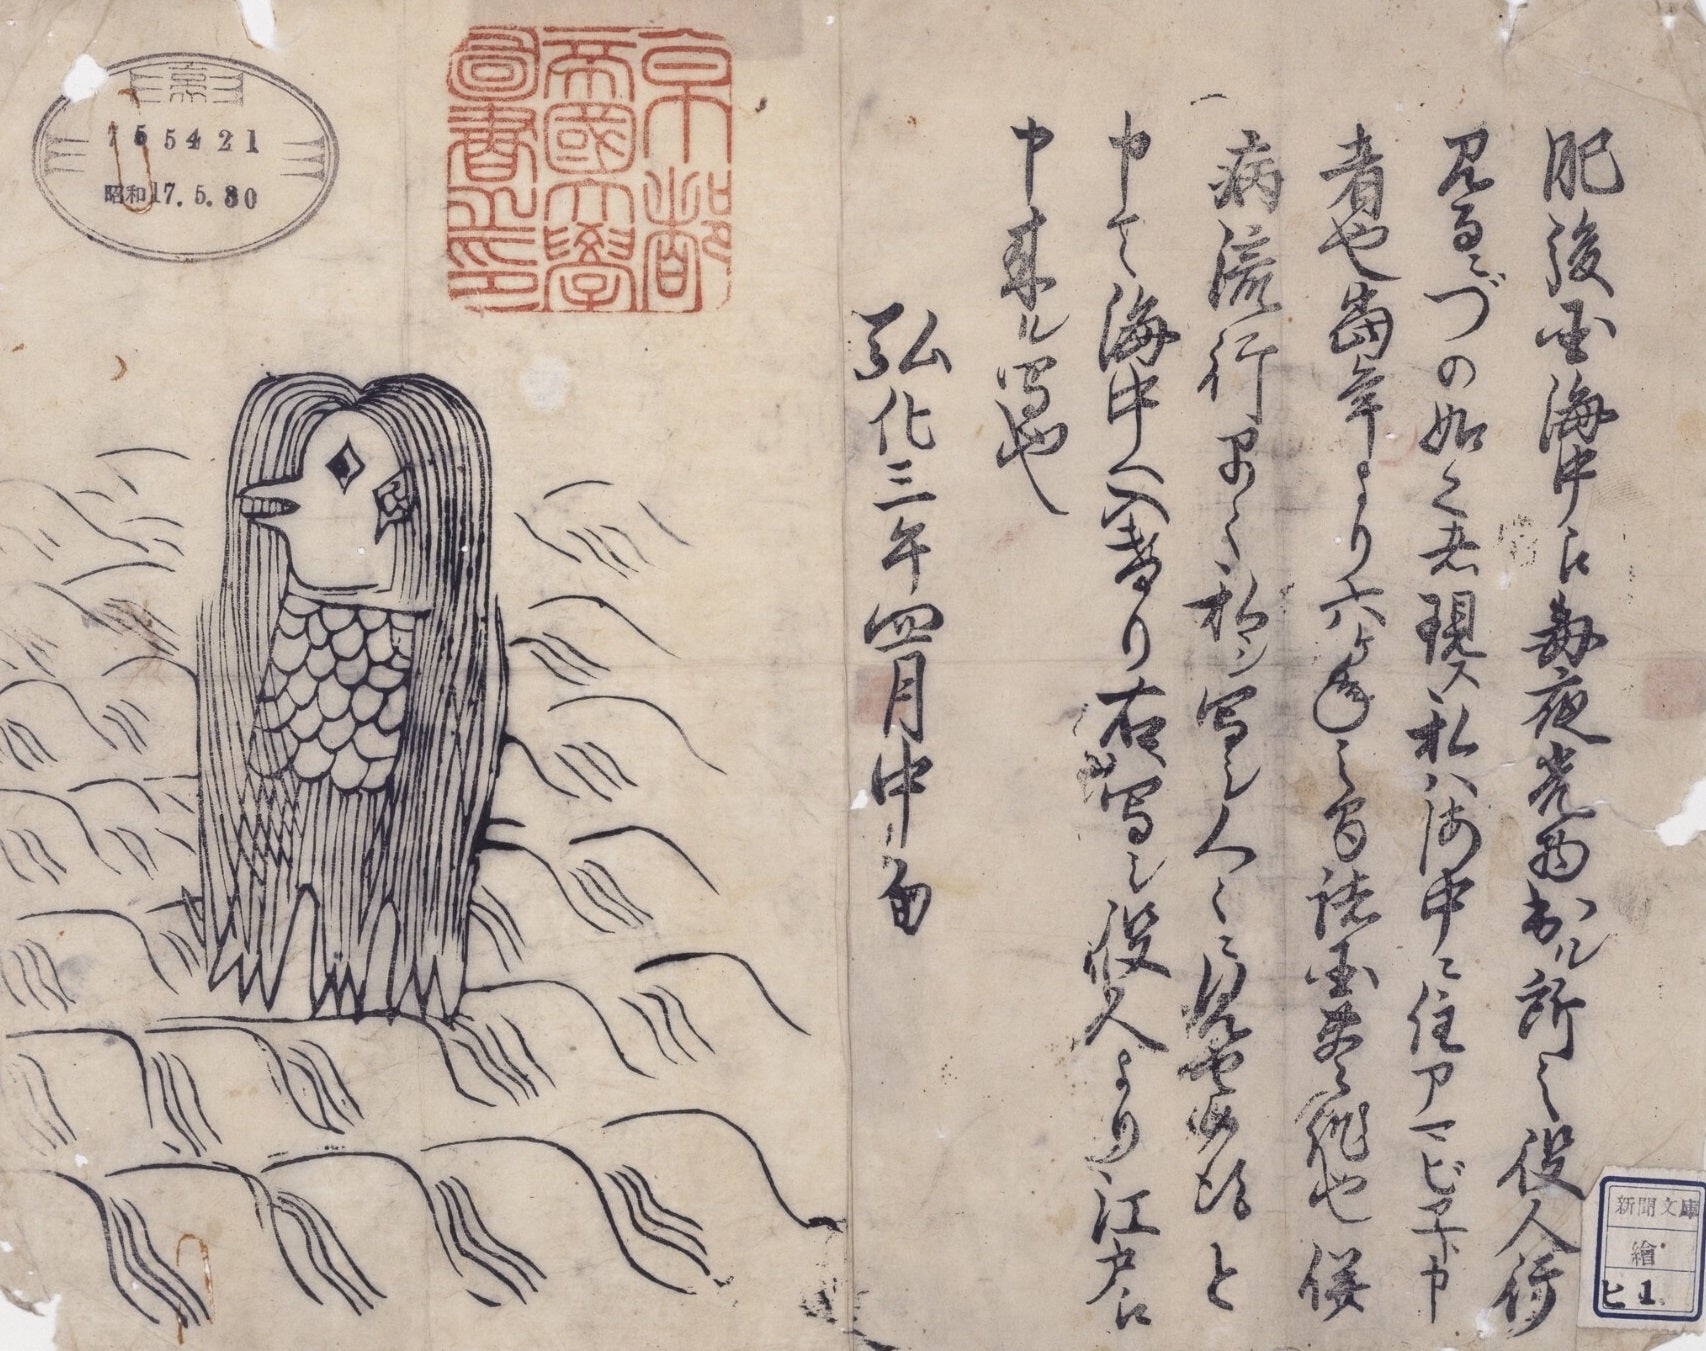 肥後国海中江毎夜光物出ル所之役人行
見るニづの如く者現ス私ハ海中ニ住アマビヱト申
者也當年より六ヶ年之間諸国豊作也併
病流行早々私シ写シ人々ニ見せ候得と
申て海中へ入けり右写シ役人より江戸江
申来ル写也
弘化三年四月中旬
京都帝國大學圖書之印
755421
昭和17.5.30
新聞文庫
繪
ヒ1